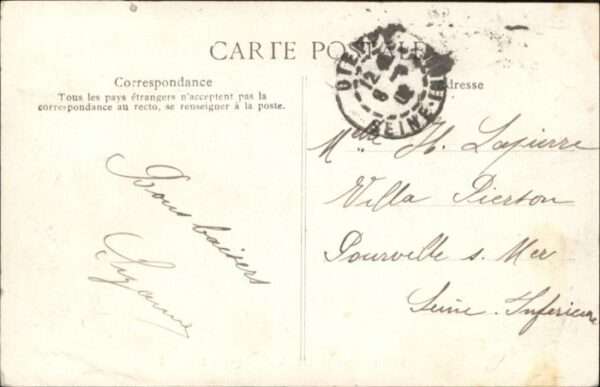 CARTE POSTALE
Correspondance
Tous les pays étrangers n'acceptent pas la
correspondance au recto, se renseigner à la poste.
Adresse
SEINE-INF
12
Bons baisers
Suzanne
Melle H. Lapierre
Villa Pierson
Pourville s. Mer
Seine-Inférieure